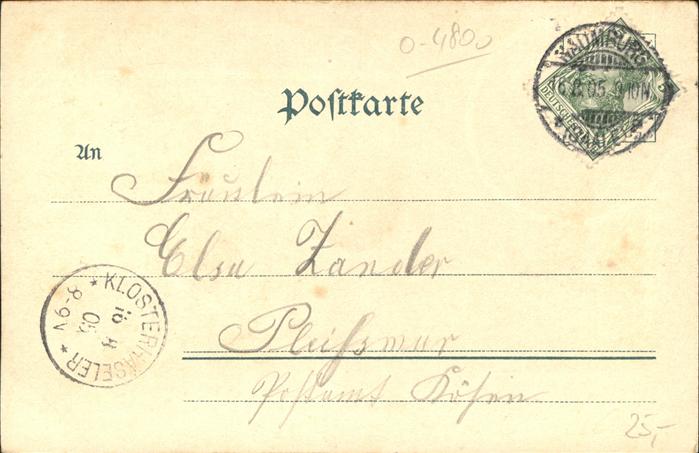 0-4800
NAUMBURG
16.8.05. 9-10N.
* (SAALE) *
DEUTSCHES
Postkarte
An
Fräulein
Elsa Zander
Pleißmar
Postamt Kösen
* KLOSTERHÄSELER *
16
8
05
8-9V
25,-